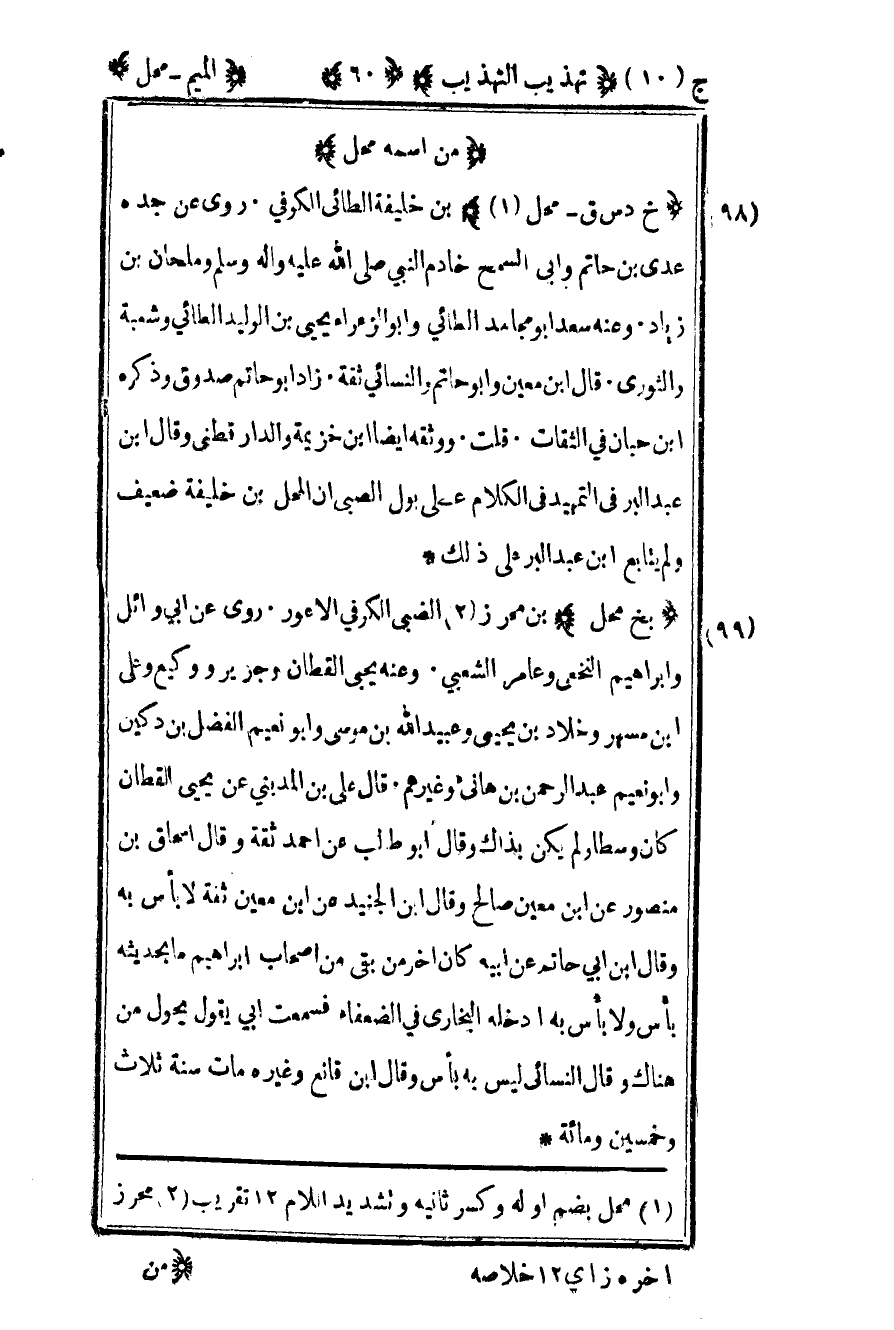 ج (١٠) ﴿ تهذيب التهذيب ﴾ ﴿ ٦٠ ﴾ ﴿ الميم - محل ﴾
﴿ من اسمه محل ﴾
(٩٨) ﴿ خ د س ق - محل (١) ﴾ بن خليفة الطائى الكوفي . روى عن جده
عدى بن حاتم وابى السمح خادم النبي صلى الله عليه واله وسلم وملحان بن
زياد . وعنه سعد ابو مجاهد الطائي وابو الزعراء يحيى بن الوليد الطائي وشعبة
والثورى . قال ابن معين وابو حاتم والنسائي ثقة . زاد ابو حاتم صدوق وذكره
ابن حبان في الثقات . قلت . ووثقه ايضا ابن خزيمة والدار قطنى وقال ابن
عبد البر فى التمهيد فى الكلام على بول الصبى ان المحل بن خليفة ضعيف
ولم يتابع ابن عبد البر على ذلك *
(٩٩) ﴿ بخ محل ﴾ بن محرز (٢) الضبى الكوفي الاعور . روى عن ابي وائل
وابراهيم النخعى وعامر الشعبي . وعنه يحيى القطان وجرير ووكيع وعلى
ابن مسهر وخلاد بن يحيى وعبيد الله بن موسى وابو نعيم الفضل بن دكين
وابو نعيم عبد الرحمن بن هانئ وغيرهم . قال على بن المديني عن يحيى القطان
كان وسطا ولم يكن بذاك وقال ابو طالب عن احمد ثقة وقال اسحاق بن
منصور عن ابن معين صالح وقال ابن الجنيد عن ابن معين ثقة لا بأس به
وقال ابن ابي حاتم عن ابيه كان اخر من بقى من اصحاب ابراهيم ما بحديثه
بأس ولا بأس به ادخله البخارى في الضعفاء فسمعت ابي يقول يحول من
هناك وقال النسائى ليس به بأس وقال ابن قانع وغيره مات سنة ثلاث
وخمسين ومائة *
(١) محل بضم اوله وكسر ثانيه وتشديد اللام ١٢ تقريب (٢) محرز
اخره زاي ١٢ خلاصه ﴿ من